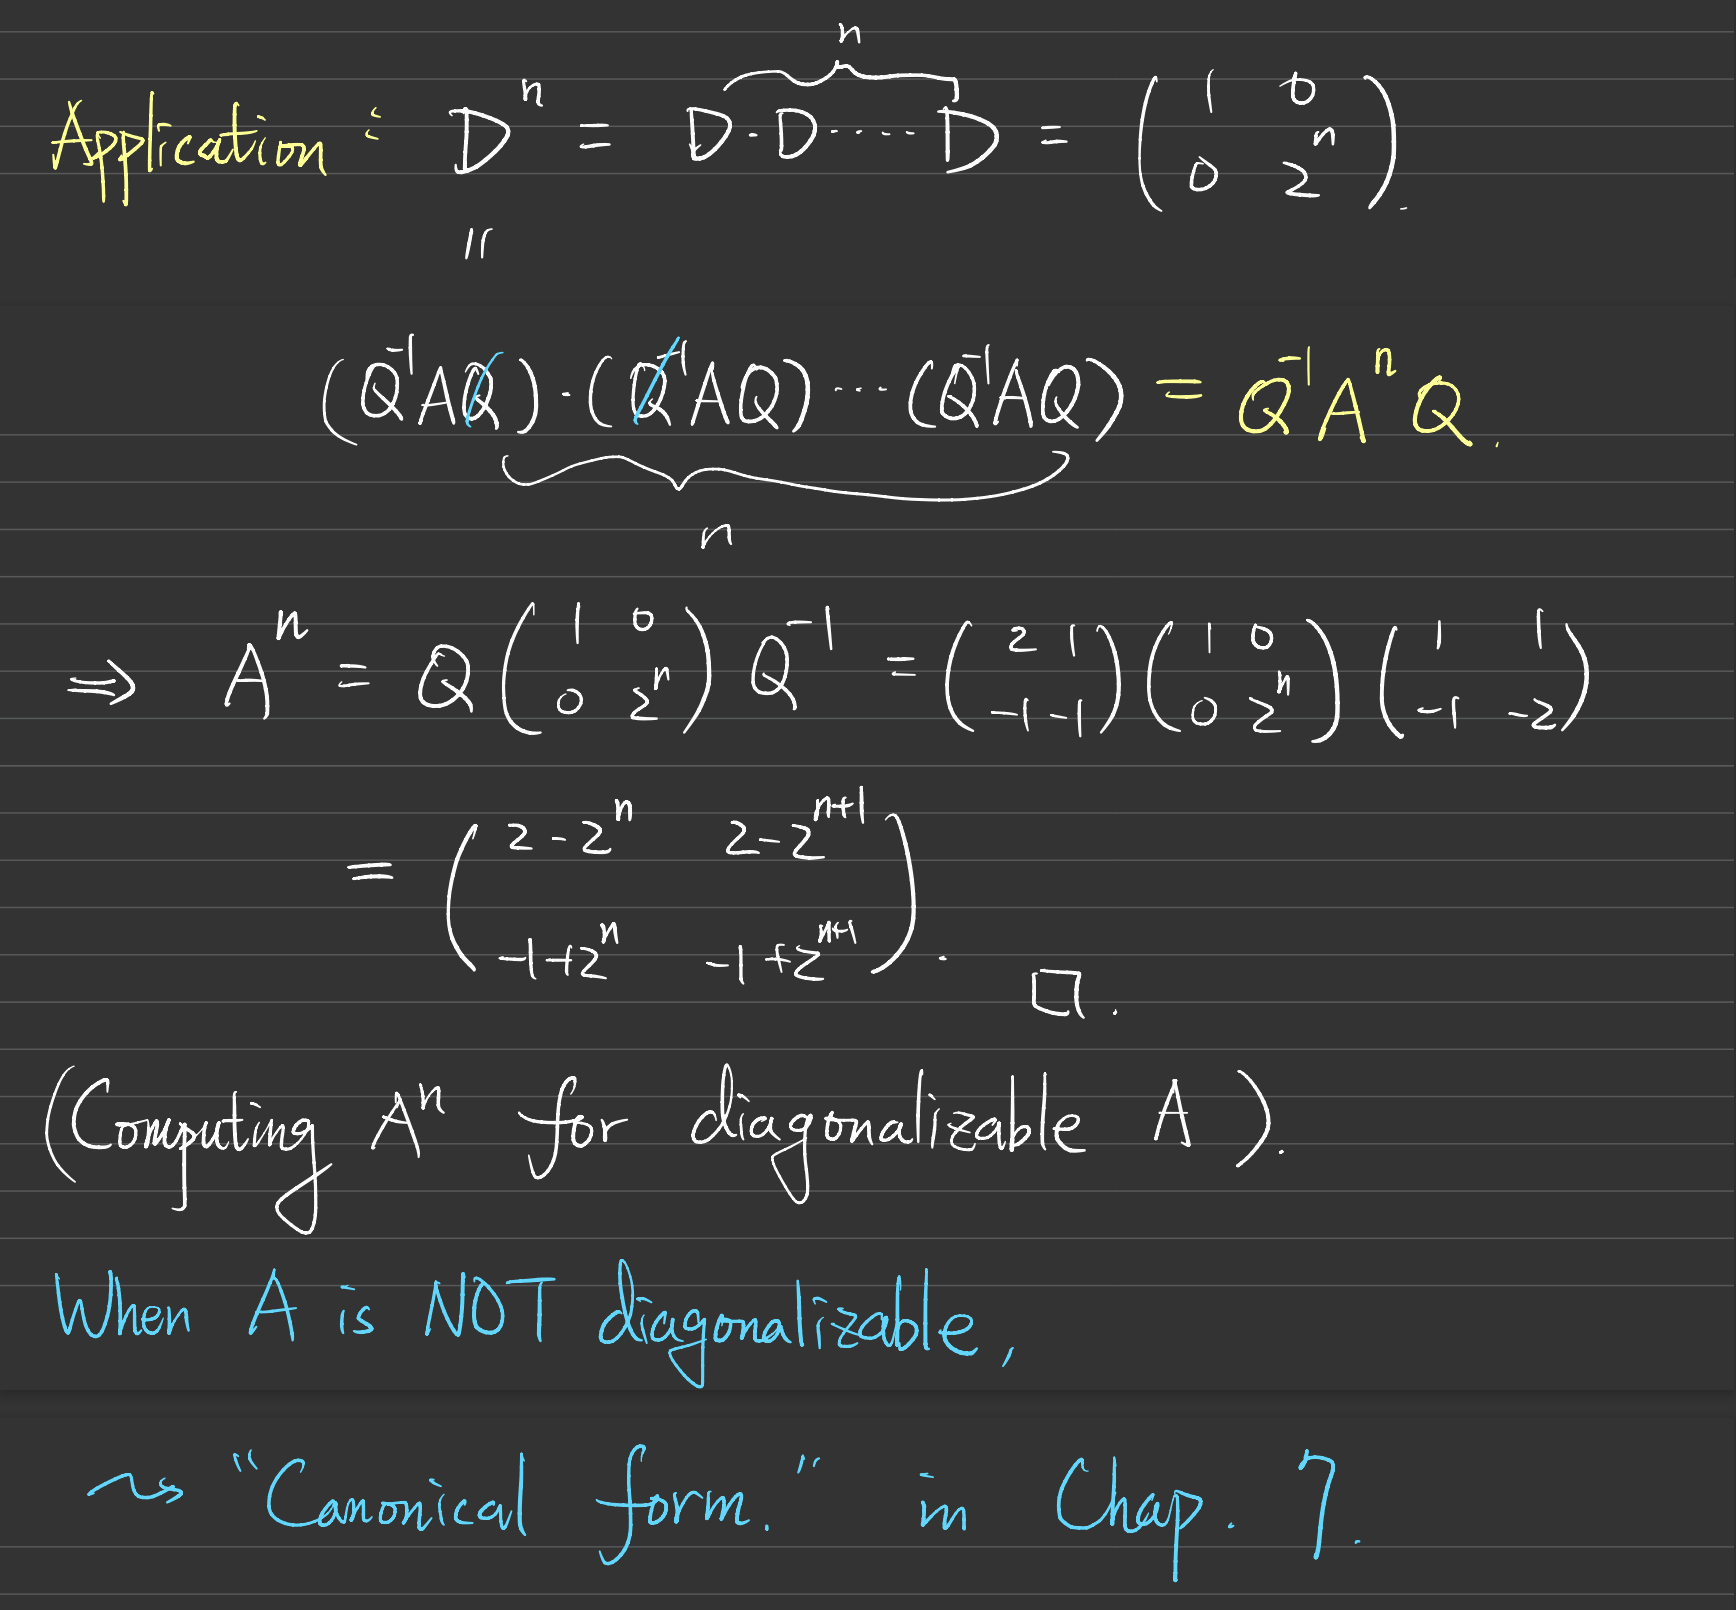 Application: Dⁿ = D·D·····D (n) = ( 1 0 ; 0 2ⁿ ).
||
(Q⁻¹AQ)·(Q⁻¹AQ)···(Q⁻¹AQ) = Q⁻¹AⁿQ.
n
⇒ Aⁿ = Q ( 1 0 ; 0 2ⁿ ) Q⁻¹ = ( 2 1 ; -1 -1 ) ( 1 0 ; 0 2ⁿ ) ( 1 1 ; -1 -2 )
= ( 2-2ⁿ 2-2ⁿ⁺¹ ; -1+2ⁿ -1+2ⁿ⁺¹ ). □.
(Computing Aⁿ for diagonalizable A).
When A is NOT diagonalizable,
⇝ "Canonical form." in Chap. 7.